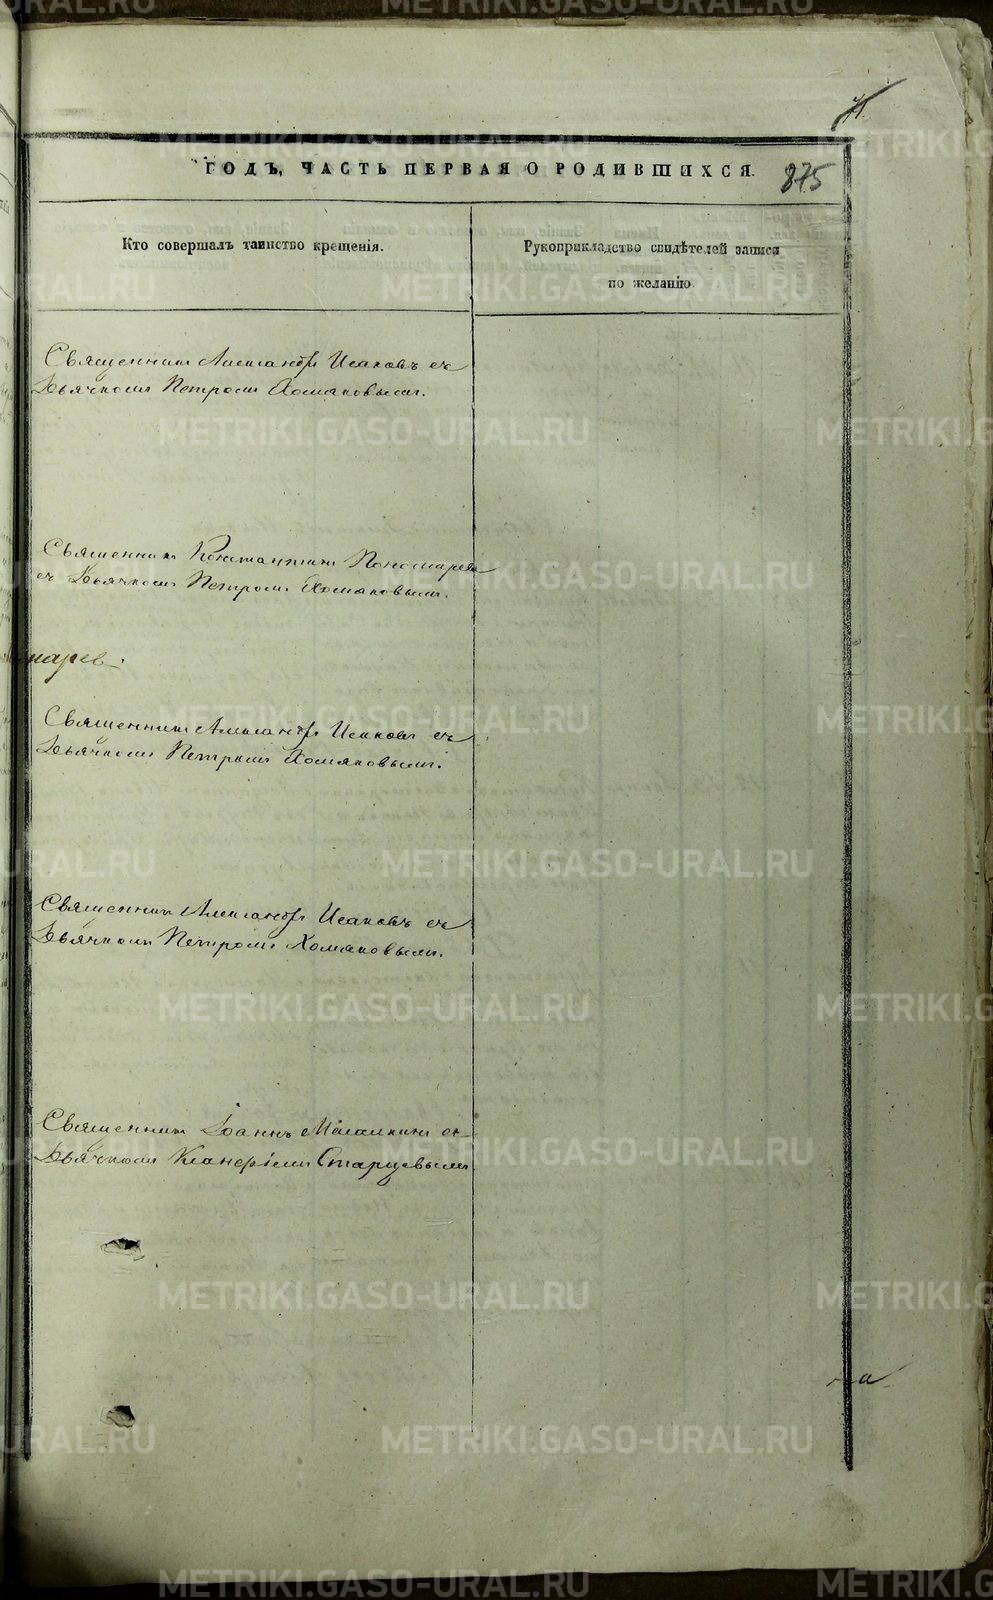 71
ГОДЪ, ЧАСТЬ ПЕРВАЯ О РОДИВШИХСЯ.
875
Кто совершалъ таинство крещенія.
Рукоприкладство свидѣтелей записи
по желанію.
Священникъ Александръ Исаковъ съ
Дьячкомъ Петромъ Хомяковымъ.
Священникъ Константинъ Пономаревъ
съ Дьячкомъ Петромъ Хомяковымъ.
Священникъ Александръ Исаковъ съ
Дьячкомъ Петромъ Хомяковымъ.
Священникъ Александръ Исаковъ съ
Дьячкомъ Петромъ Хомяковымъ.
Священникъ Іоаннъ съ
Дьячкомъ Старцевымъ.
METRIKI.GASO-URAL.RU